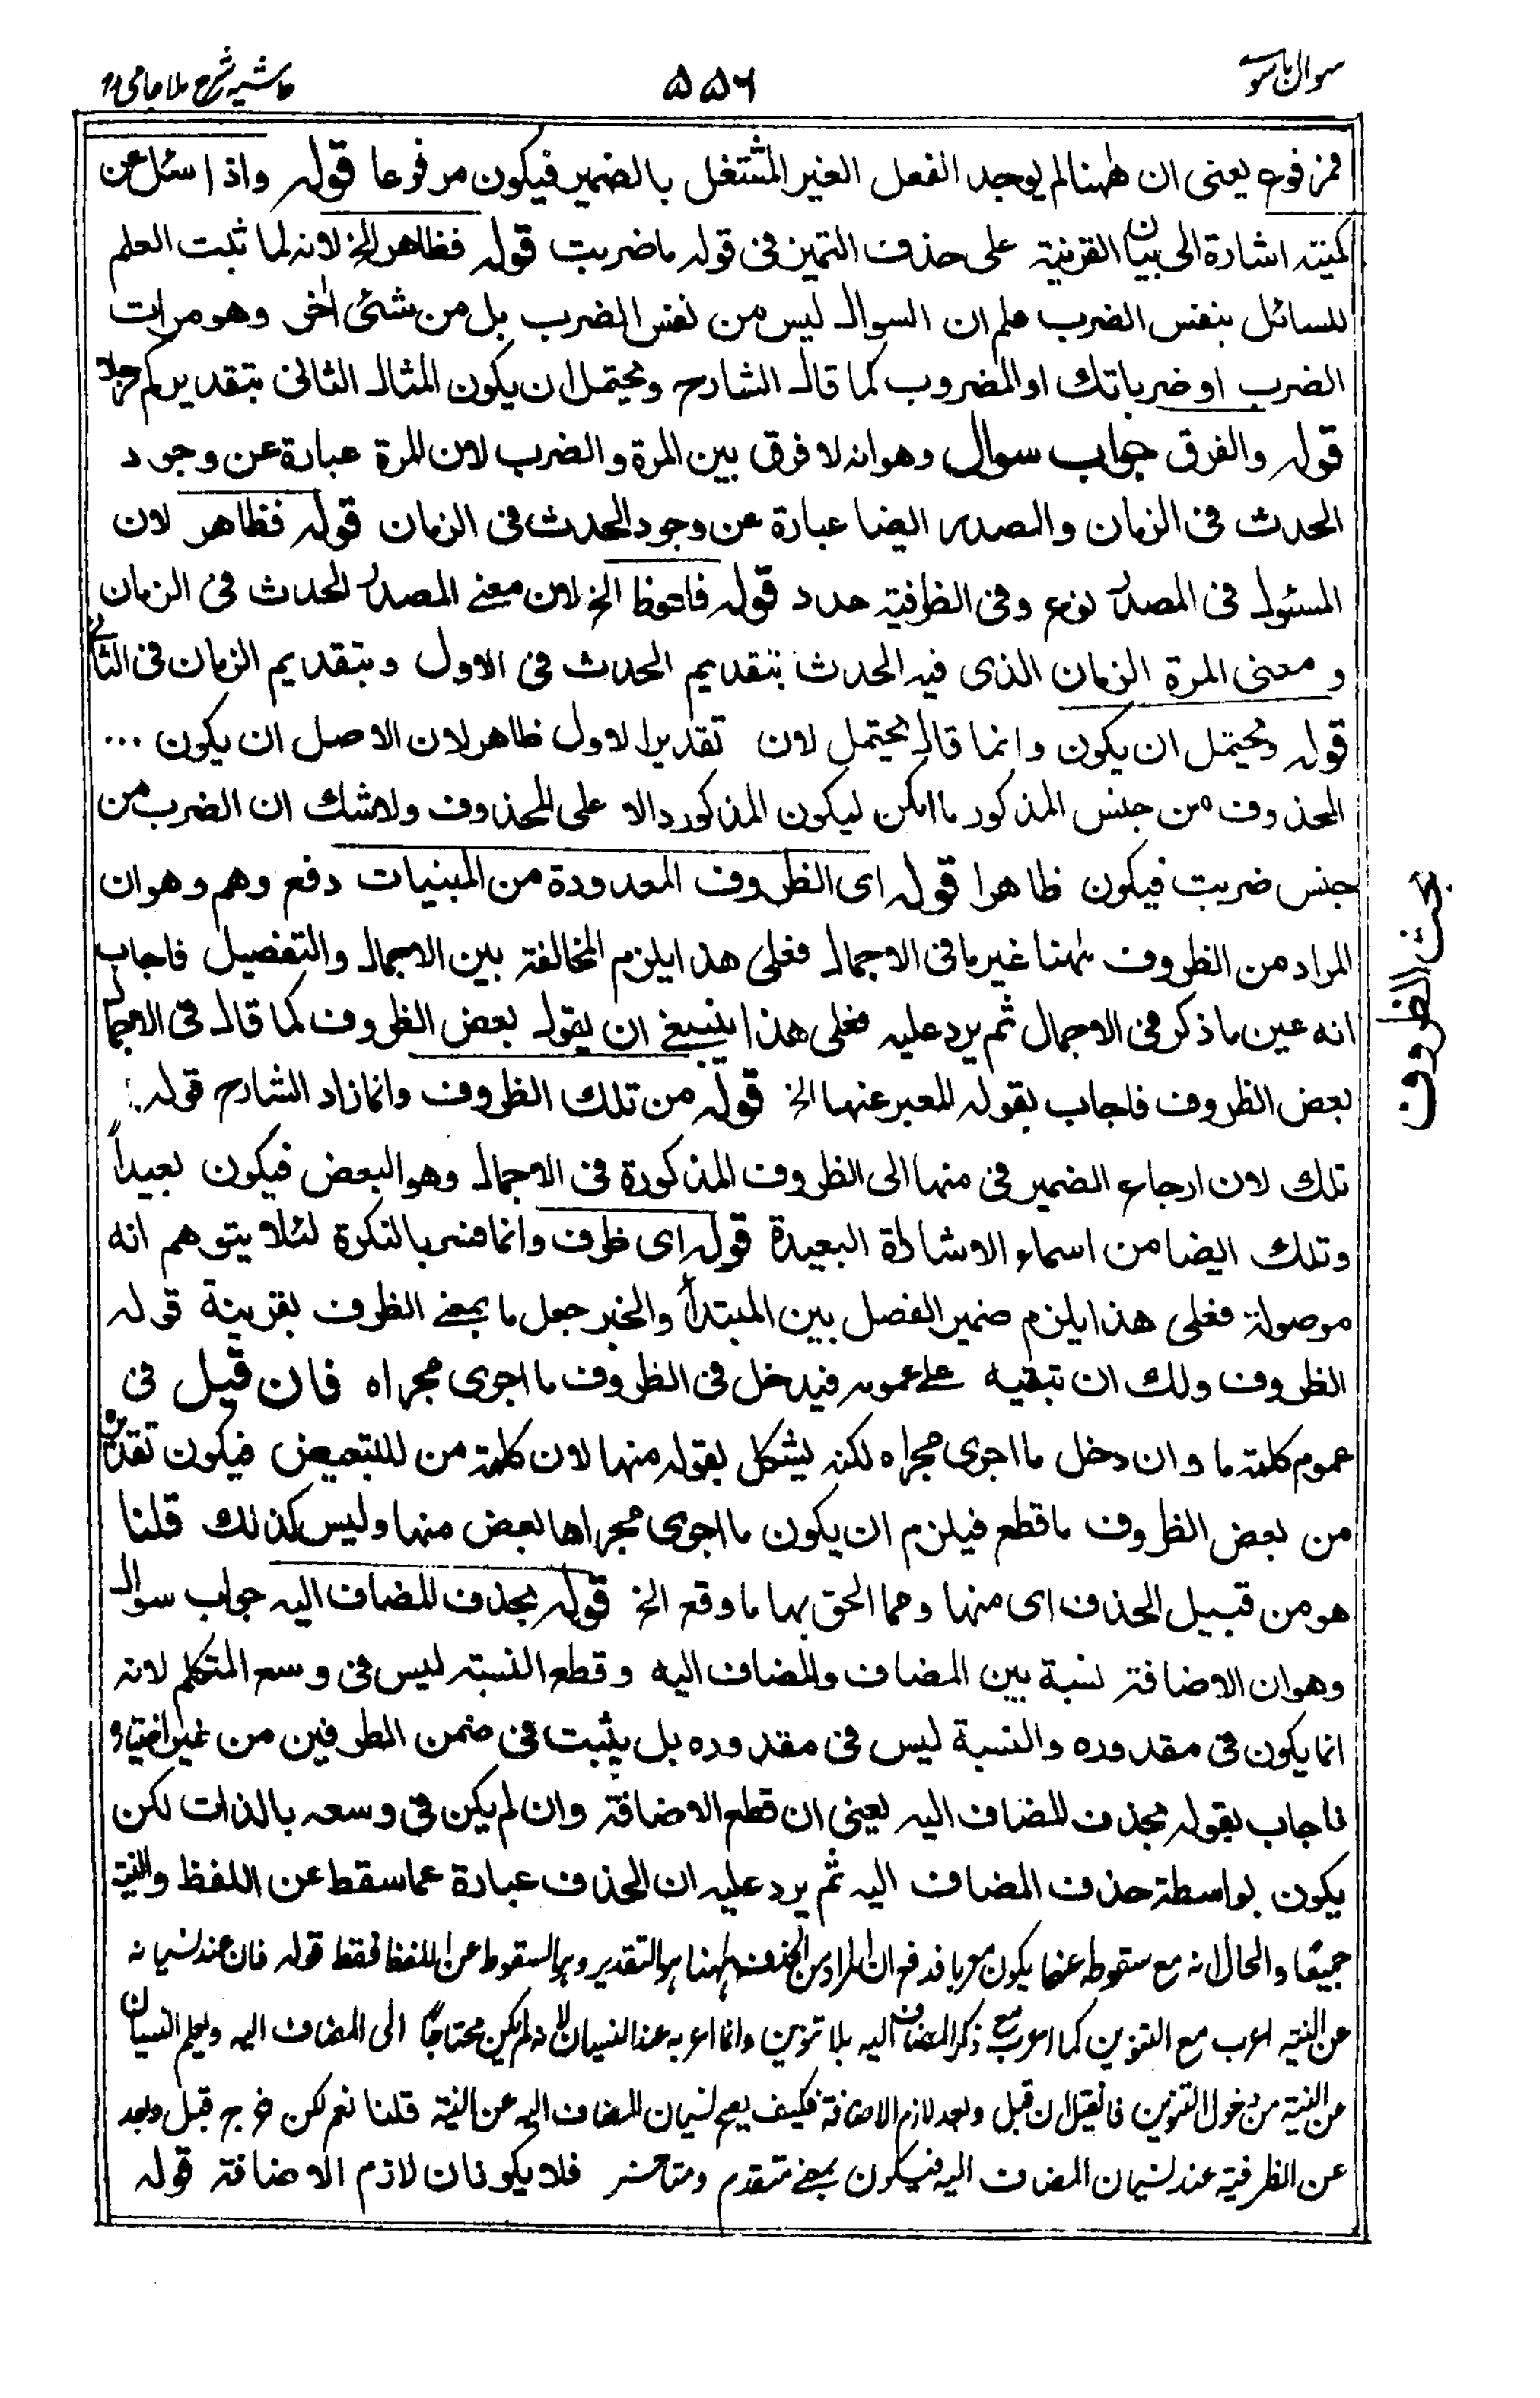 سوال باسولی
۵۵۶
حاشیہ شرح ملا جامی
فمرفوع یعنی ان ههنا لم یوجد الفعل الغیر المشتغل بالضمیر فیکون مرفوعا قوله واذا سئل عن
کمیته اشارة الی بیان القرینة علی حذف التمیز فی قوله ماضربت قوله فظاهر الخ لانه لما ثبت العلم
للسائل بنفس الضرب علم ان السوال لیس من نفس الضرب بل من شئ اخر وهو مرات
الضرب او ضرباتك او المضروب کما قال الشارح ویحتمل ان یکون المثال الثانی بتقدیر کم رجلا
قوله والفرق جواب سوال وهو انه لا فرق بین المرة والضرب لان المرة عبارة عن وجود
الحدث فی الزمان والمصدر ایضا عبارة عن وجود الحدث فی الزمان قوله فظاهر لان
المسئول فی المصدر نوع وفی الظرفیة عدد قوله فالحوظ الخ لان معنے المصدر الحدث فی الزمان
و معنی المرة الزمان الذی فیه الحدث بتقدیم الحدث فی الاول وبتقدیم الزمان فی الثانی
قوله ویحتمل ان یکون وانما قال یحتمل لان تقدیر الاول ظاهر لان الاصل ان یکون ...
المحذوف من جنس المذکور ما امکن لیکون المذکور دالا علی المحذوف ولاشك ان الضرب من
جنس ضربت فیکون ظاهرا قوله ای الظروف المعدودة من المبنیات دفع وهم وهو ان
المراد من الظروف ههنا غیر ما فی الاجمال فعلی هذا یلزم المخالفة بین الاجمال والتفصیل فاجاب
انه عین ما ذکر فی الاجمال ثم یرد علیه فعلی هذا ینبغے ان یقول بعض الظروف کما قال فی الاجمال
بعض الظروف فاجاب بقوله المعبر عنها الخ قوله من تلك الظروف وانما زاد الشارح قوله
تلك لان ارجاع الضمیر فی منها الی الظروف المذکورة فی الاجمال وهو البعض فیکون بعیداً
وتلك ایضا من اسماء الاشارة البعیدة قوله ای ظرف وانما فسر بالنکرة لئلا یتوهم انه
موصولة فعلی هذا یلزم ضمیر الفصل بین المبتدأ والخبر جعل ما بمعنے الظرف بقرینة قوله
الظروف ولك ان تبقیه علے عمومه فیدخل فی الظروف ما اجری مجراه فان قیل فی
عموم کلمة ما وان دخل ما اجری مجراه لکنه یشکل بقوله منها لان کلمة من للتبعیض فیکون تقدیره
من بعض الظروف ما قطع فیلزم ان یکون ما اجری مجراها بعض منها ولیس کذلك قلنا
هو من قبیل الحذف ای منها ومما الحق بها ما وقع الخ قوله بحذف المضاف الیه جواب سوال
وهو ان الاضافة نسبة بین المضاف والمضاف الیه وقطع النسبة لیس فی وسع المتکلم لانه
انما یکون فی مقدوره والنسبة لیس فی مقدوره بل یثبت فی ضمن الطرفین من غیر اختیاره
فاجاب بقوله بحذف المضاف الیه یعنی ان قطع الاضافة وان لم یکن فی وسعه بالذات لکن
یکون بواسطة حذف المضاف الیه ثم یرد علیه ان الحذف عبارة عما سقط عن اللفظ والنیة
جمیعًا والحال انه مع سقوطه عنهما یکون معربا فدفع ان المراد من الحذف ههنا هو التقدیر وهو السقوط عن اللفظ فقط قوله فان عند نسیانه
عن النیة اعرب مع التنوین کما اعرب مع ذکر المضاف الیه بلا تنوین وانما اعرب عند النسیان لانه لم یکن محتاجًا الی المضاف الیه ویعلم النسیان
عن النیة من دخول التنوین فان قیل ان قبل وبعد لازم الاضافة فکیف یصح نسیان المضاف الیه عن النیة قلنا نعم لکن خرج قبل وبعد
عن الظرفیة عند نسیان المضاف الیه فیکون بمعنے متقدم ومتأخر فلا یکونان لازم الاضافة قوله
بحث الظروف